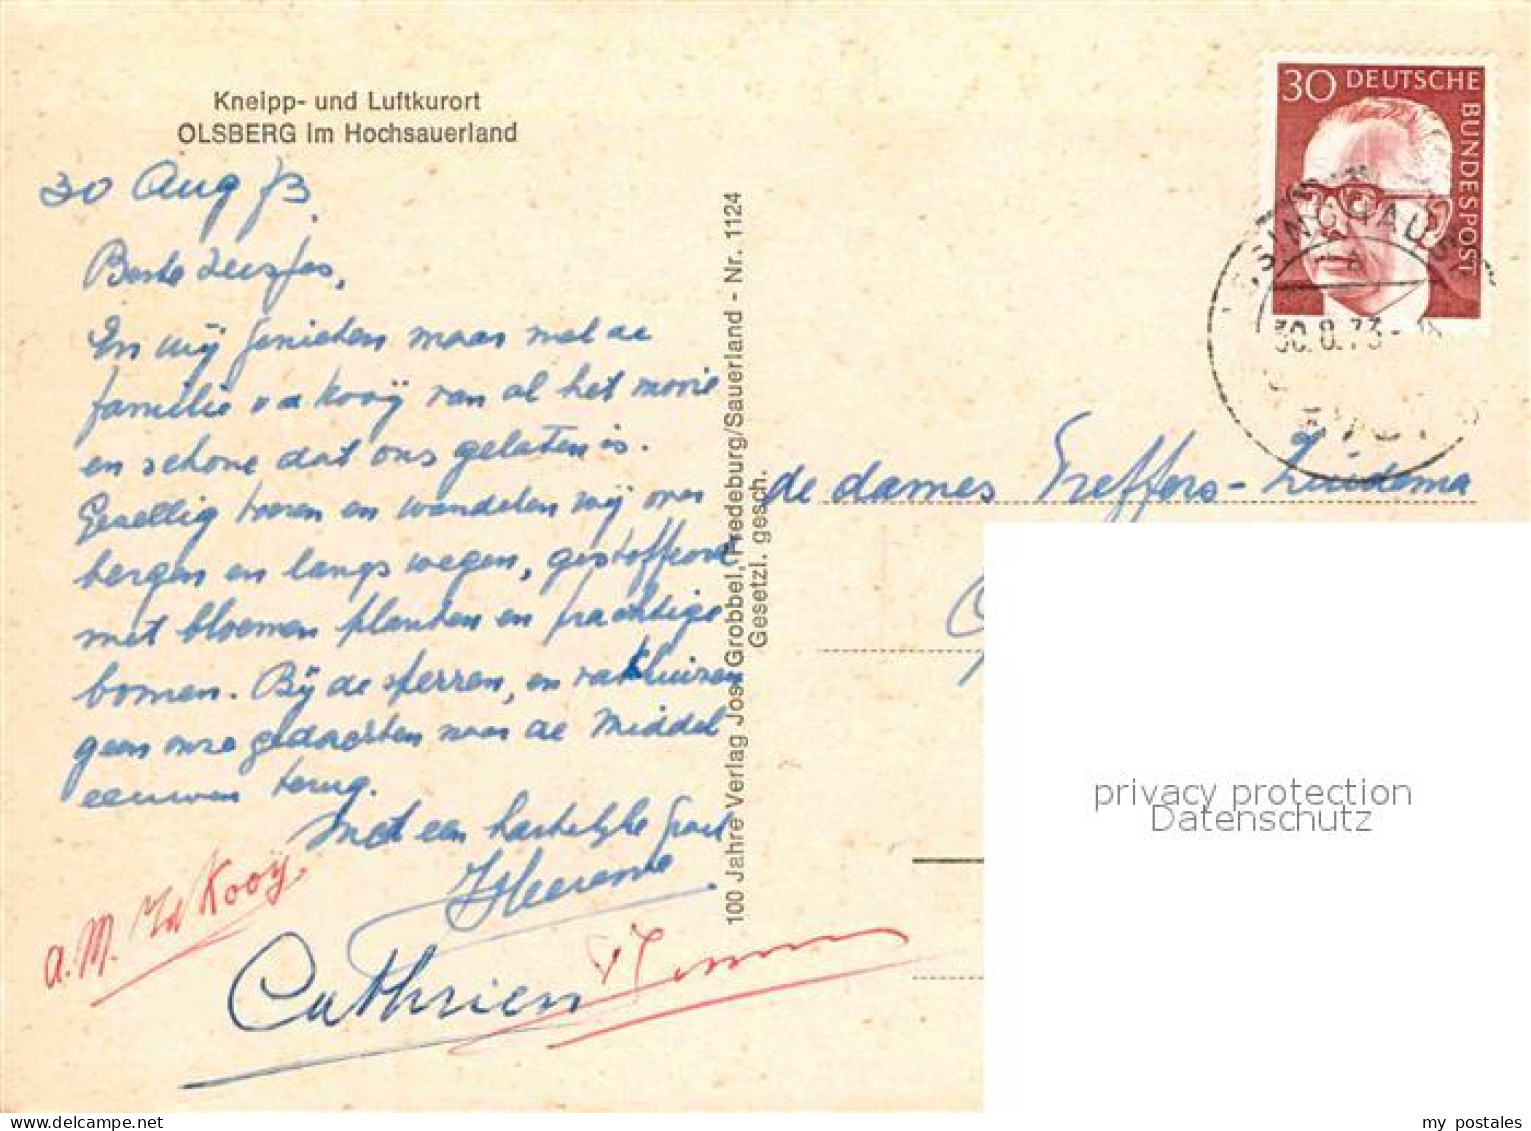 Kneipp- und Luftkurort
OLSBERG im Hochsauerland
30 Aug 73.
Beste
En wij genieten maar met de
familie v d Kooij van al het mooie
en schone dat ons gelaten is.
Gezellig toeren en wandelen wij over
bergen en langs wegen, gestoffeerd
met bloemen planten en prachtige
bomen. Bij de sperren, en
gaan onze gedachten naar de Middel
eeuwen terug.
Met een hartelijke groet
Heerema
A. M. vd Kooij.
Cathrien
100 Jahre Verlag Jos. Grobbel, Fredeburg/Sauerland - Nr. 1124
Gesetzl. gesch.
30 DEUTSCHE
BUNDESPOST
30.8.73
de dames Greffers - Zuidema
privacy protection
Datenschutz
my postales